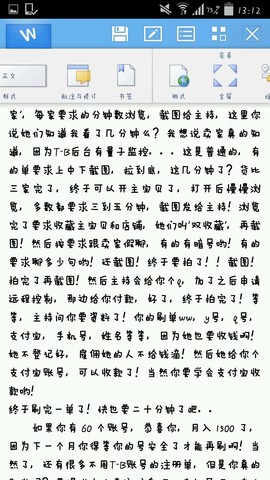 75%
13:12
W
查看
正文
样式
批注与修订
书签
版式
全屏
家”，每家要求的分钟数浏览，截图给主持，这里你
说她们知道我看了几分钟么？我想说卖家真的知
道，因为T-B后台有量子监控．．．这是普通的，有
的单要求上中下截图，拉到底，这几分钟了？货比
三家完了，终于可以开主宝贝了，打开后慢慢浏
览，多数都要求三到五分钟，截图发给主持！浏览
完了要求收藏主宝贝和店铺，她们叫‘双收藏’，再截
图！然后按要求跟卖家假聊，有的有暗号哟！有的
要求聊多少句哟！还截图！终于要拍了！！截图！
拍完了再截图！然后主持会给你个q，加了之后申请
远程控制，那边给你付款，好了，终于拍完了！等
等，主持问你要资料了！你的刷单ww，y号，q号，
支付宝，手机号，姓名等等，因为她也要收钱吗！
她不登记好，雇佣她的人不给钱滴！然后她给你个
支付宝账号，可以收款了！当然你要学会支付宝收
款哟！
终于刷完一单了！快也要二十分钟了吧．．
如果你有 60 个账号，恭喜你，月入 1500 了，
因为下一个月你得等你的号安全了才能再刷啊！当
然了，还有很多不用T-B账号的注册单，但是你真的